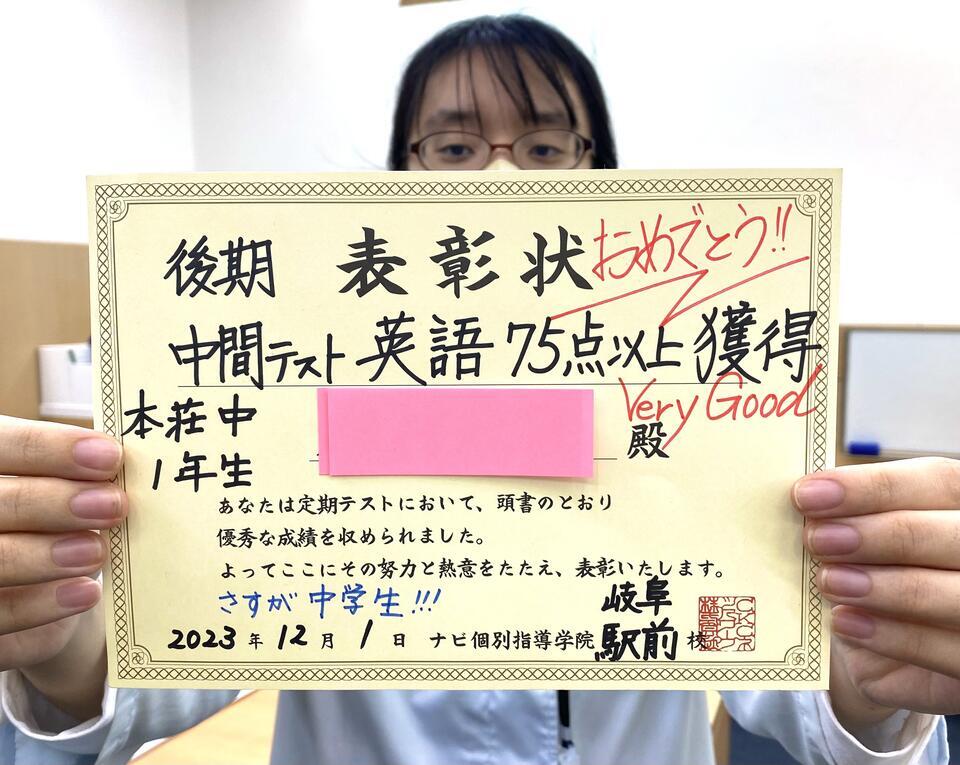 後期 表彰状 おめでとう!!
中間テスト 英語 75点以上 獲得
Very Good
本荘中
1年生
殿
あなたは定期テストにおいて、頭書のとおり
優秀な成績を収められました。
よってここにその努力と熱意をたたえ、表彰いたします。
さすが中学生!!!
2023年12月1日 ナビ個別指導学院 岐阜駅前校